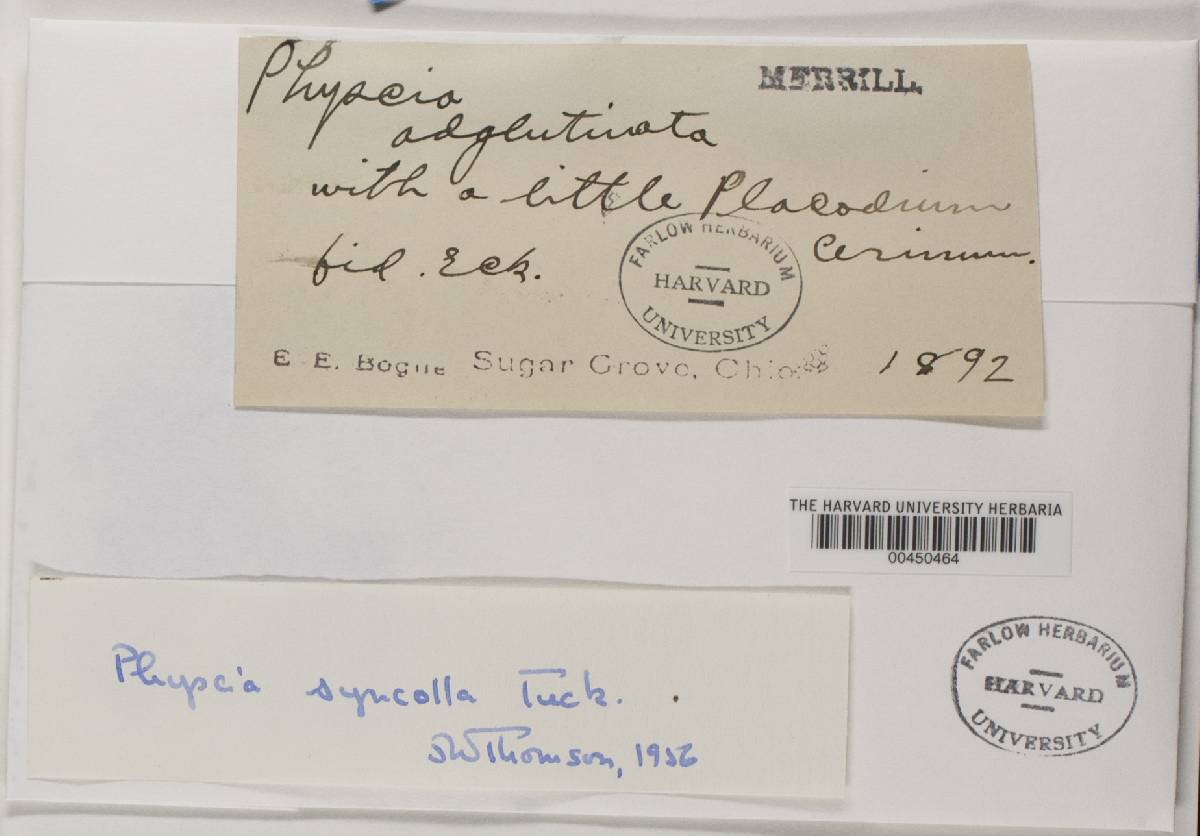 MERRILL.
Physcia
adglutinata
with a little Placodium
cerinum.
fid. Eck.
FARLOW HERBARIUM
HARVARD
UNIVERSITY
E. E. Bogue Sugar Grove, Ohio. 1892
THE HARVARD UNIVERSITY HERBARIA
00450464
Physcia syncolla Tuck.
JWThomson, 1956
FARLOW HERBARIUM
HARVARD
UNIVERSITY